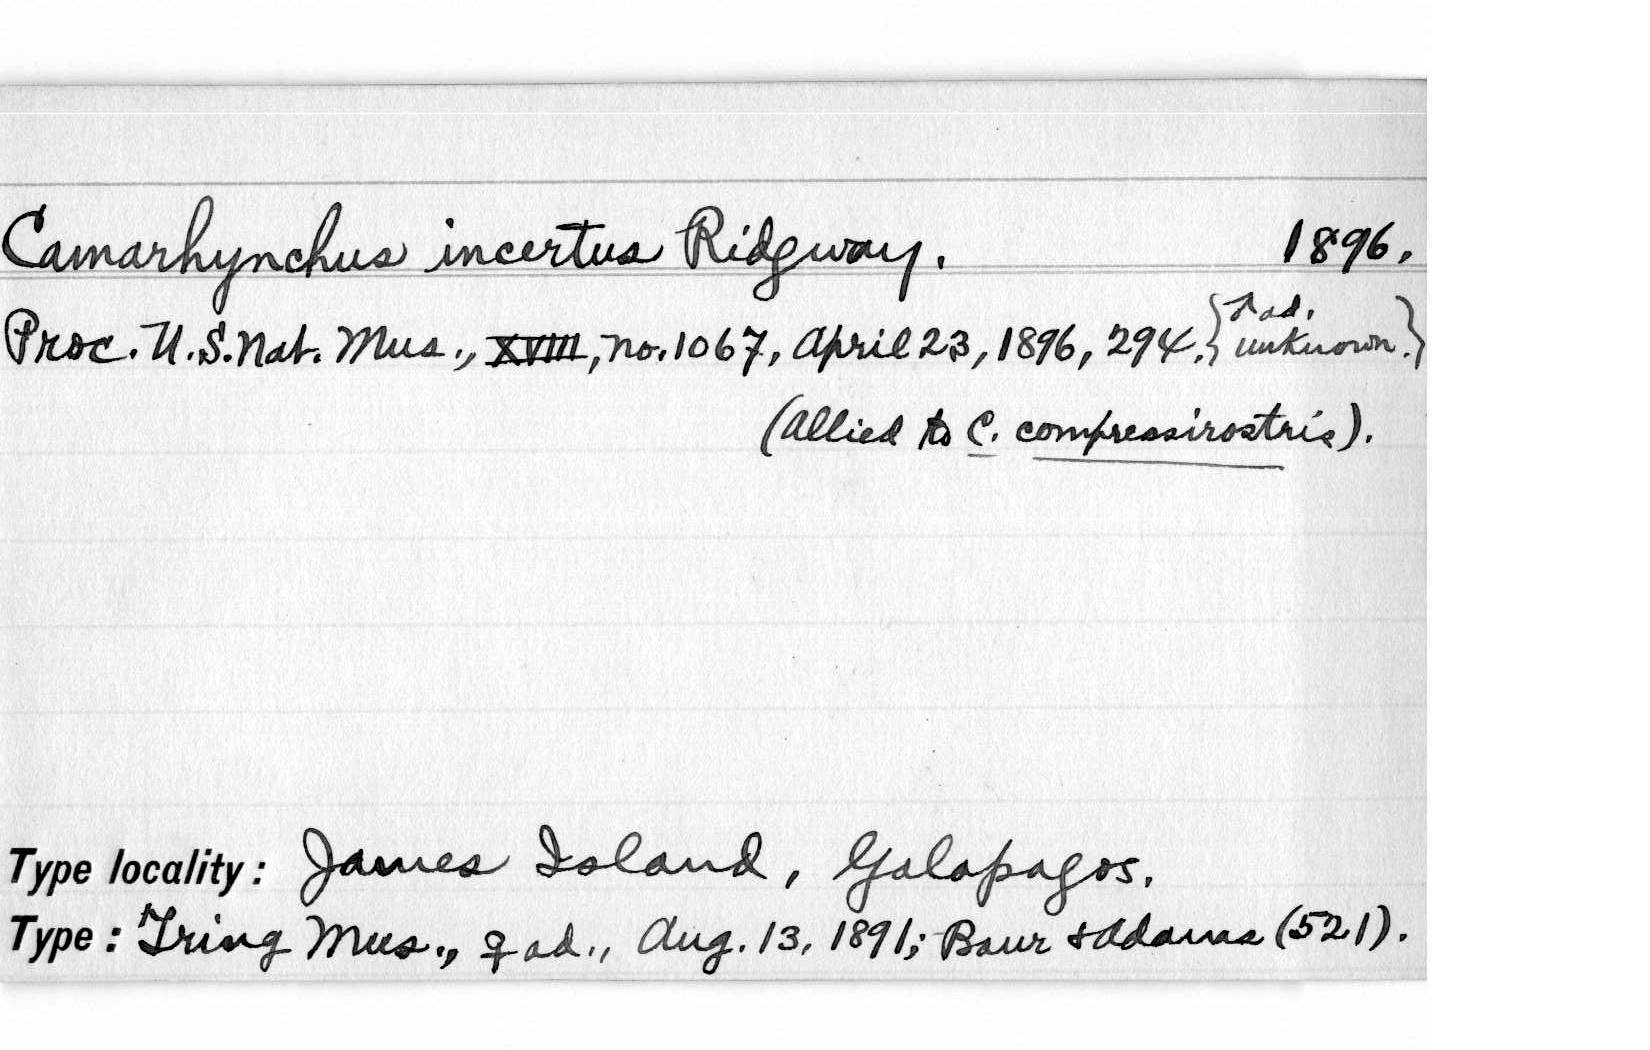 Camarhynchus incertus Ridgway. 1896.
Proc. U.S. Nat. Mus., XVIII, no. 1067, April 23, 1896, 294. {♂ ad. unknown.}
(Allied to C. compressirostris).
Type locality: James Island, Galapagos.
Type: Tring Mus., ♀ ad., Aug. 13, 1891; Baur & Adams (521).